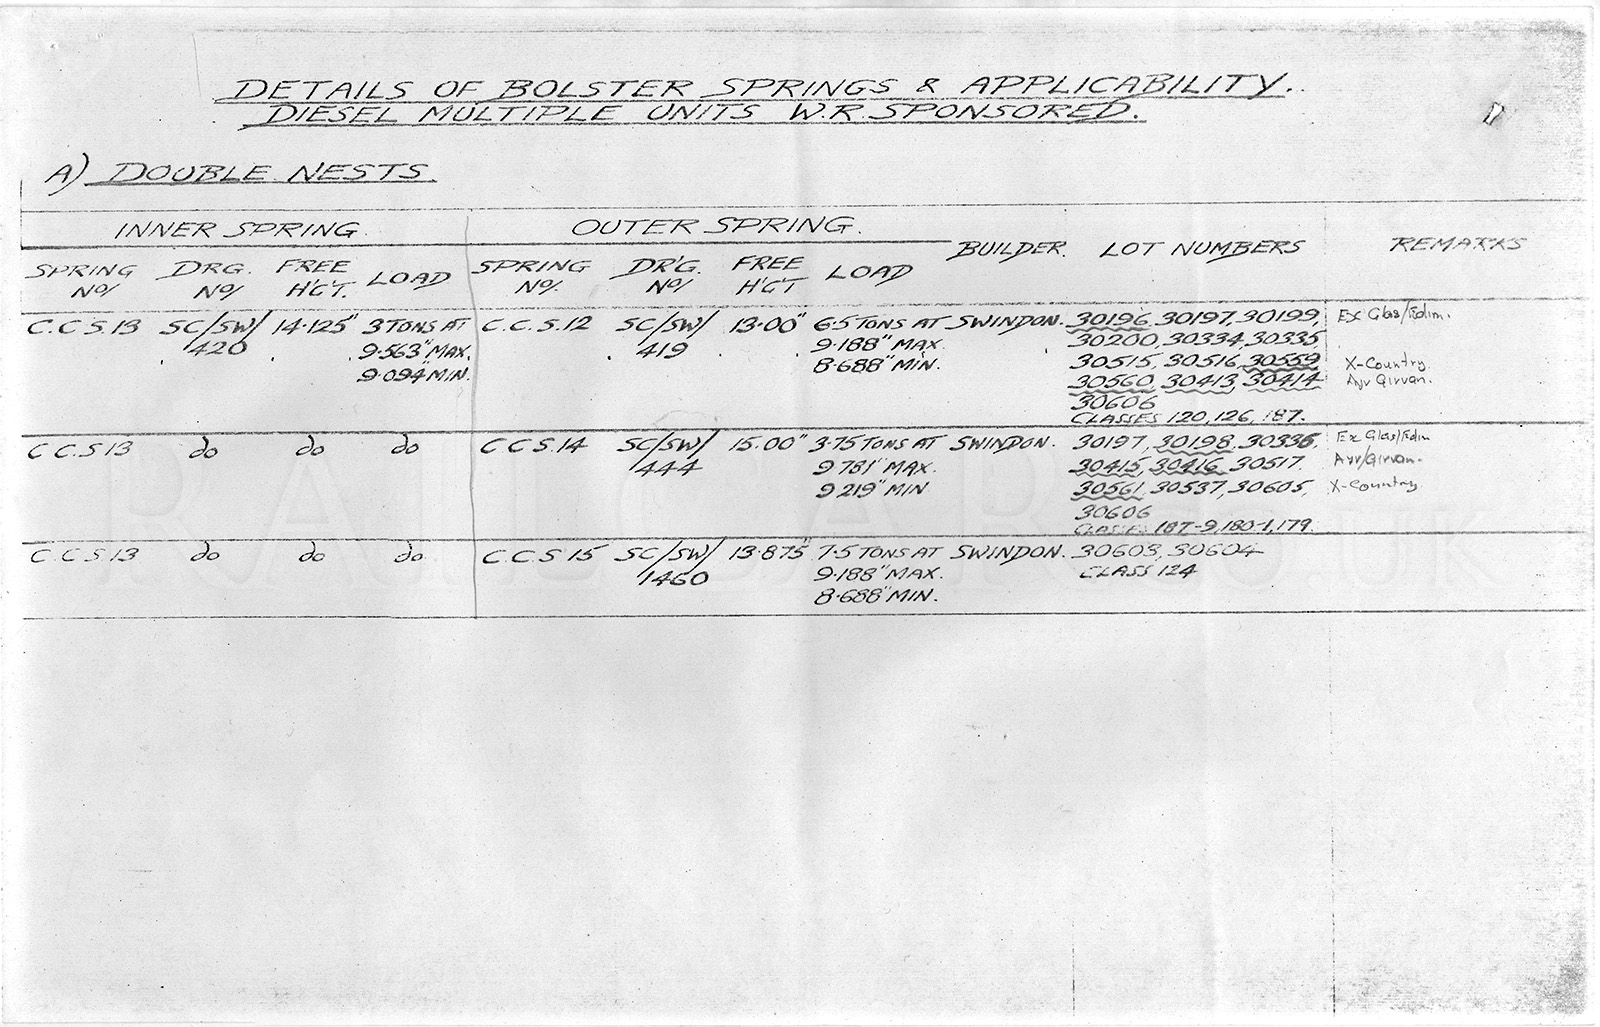 DETAILS OF BOLSTER SPRINGS & APPLICABILITY.
DIESEL MULTIPLE UNITS W.R. SPONSORED.
A) DOUBLE NESTS.
INNER SPRING. OUTER SPRING. BUILDER. LOT NUMBERS REMARKS
SPRING DRG. FREE LOAD SPRING DR'G. FREE LOAD
No/ No/ H'G'T. No/. No/ H'G'T
C.C.S.13 SC/SW/ 14.125" 3 TONS AT C.C.S.12 SC/SW/ 13.00" 6.5 TONS AT SWINDON. 30196, 30197, 30199, Ex Glas/Edin.
420 9.563" MAX. 419 9.188" MAX. 30200, 30334, 30335
9.094" MIN. 8.688" MIN. 30515, 30516, 30559 X-Country.
30560, 30413, 30414 Ayr Girvan.
30606
CLASSES 120, 126, 187.
C.C.S.13 do do do C.C.S.14 SC/SW/ 15.00" 3.75 TONS AT SWINDON. 30197, 30198, 30336, Ex Glas/Edin
444 9.781" MAX. 30415, 30416, 30517. Ayr/Girvan.
9.219" MIN 30561, 30537, 30605, X-Country
30606
CLASSES 187-9, 180-1, 179.
C.C.S.13 do do do C.C.S.15 SC/SW/ 13.875" 7.5 TONS AT SWINDON. 30603, 30604
1460 9.188" MAX. CLASS 124
8.688" MIN.
RAILCAR.CO.UK